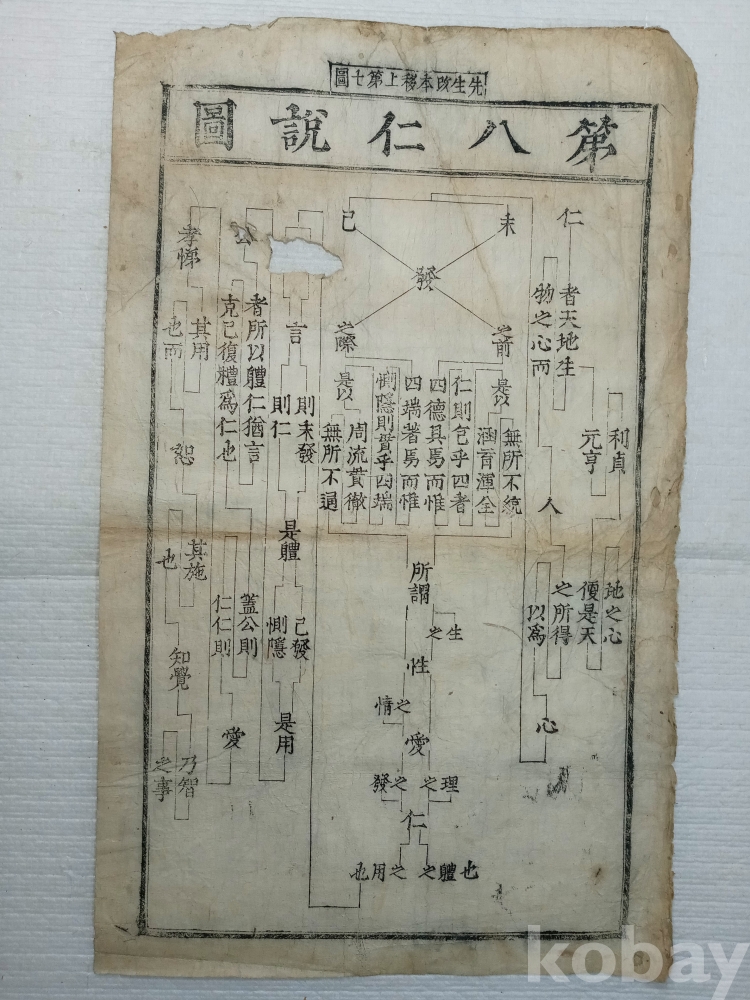 先生改本移上第七圖
第八仁說圖
仁
者天地生
物之心而
人
之所得
以爲
心
利貞
元亨
地之心
便是天
未
發
已
之前
是以
無所不統
涵育渾全
仁則包乎四者
四德具焉而惟
之際
是以
四端著焉而惟
惻隱則貫乎四端
周流貫徹
無所不通
所謂
生之
性
之情
愛
理之
之發
仁
之體也
之用也
公
者所以體仁猶言
克己復禮爲仁也
蓋公則
仁仁則
愛
言
則未發
則仁
是體
已發
惻隱
是用
孝悌
其用
也而
恕
其施
也
知覺
乃智
之事
kobay